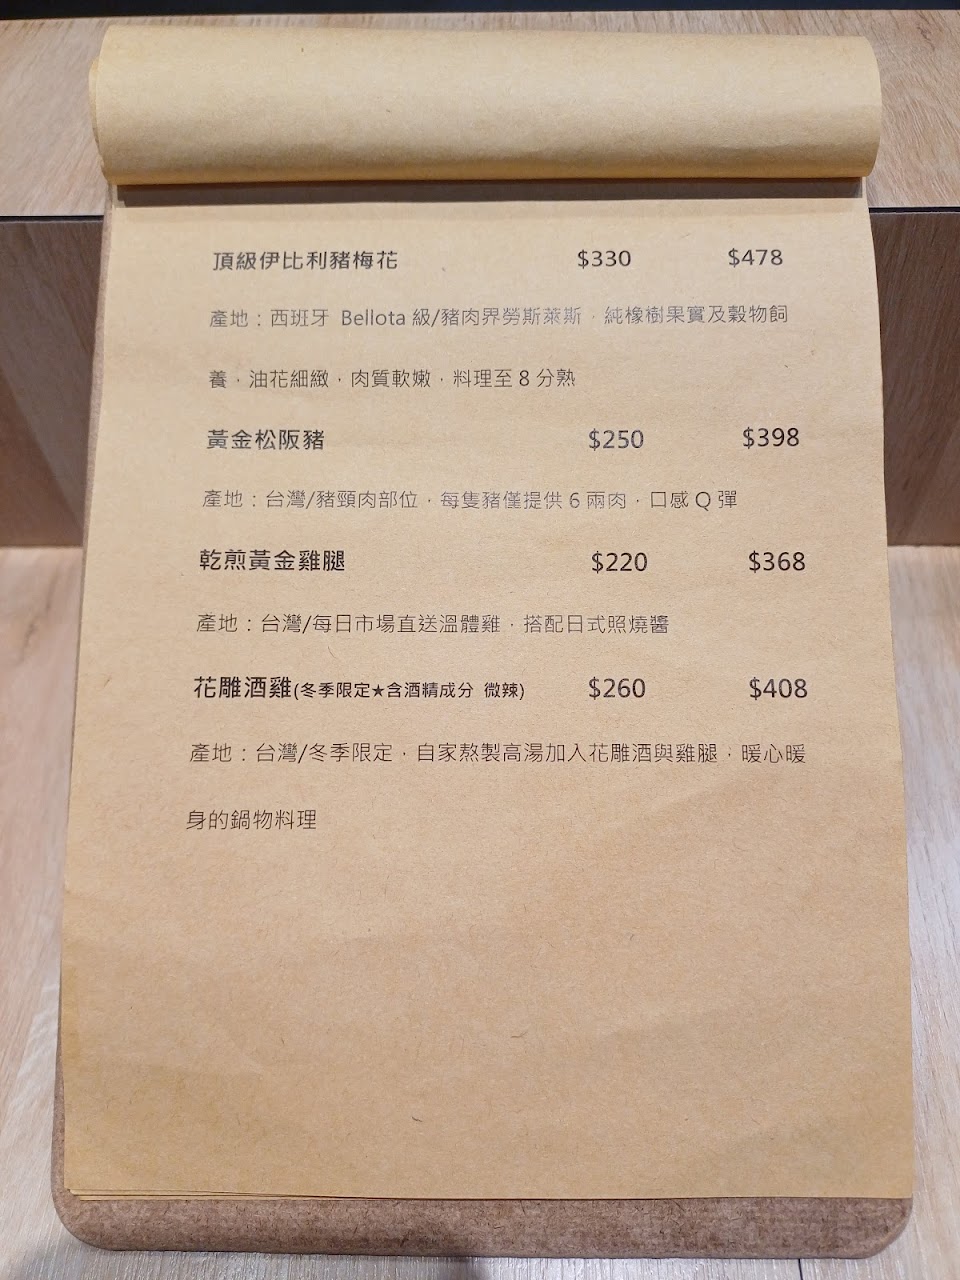 頂級伊比利豬梅花 $330 $478
產地：西班牙 Bellota 級/豬肉界勞斯萊斯，純橡樹果實及穀物飼
養，油花細緻，肉質軟嫩，料理至 8 分熟
黃金松阪豬 $250 $398
產地：台灣/豬頸肉部位，每隻豬僅提供 6 兩肉，口感 Q 彈
乾煎黃金雞腿 $220 $368
產地：台灣/每日市場直送溫體雞，搭配日式照燒醬
花雕酒雞(冬季限定★含酒精成分 微辣) $260 $408
產地：台灣/冬季限定，自家熬製高湯加入花雕酒與雞腿，暖心暖
身的鍋物料理